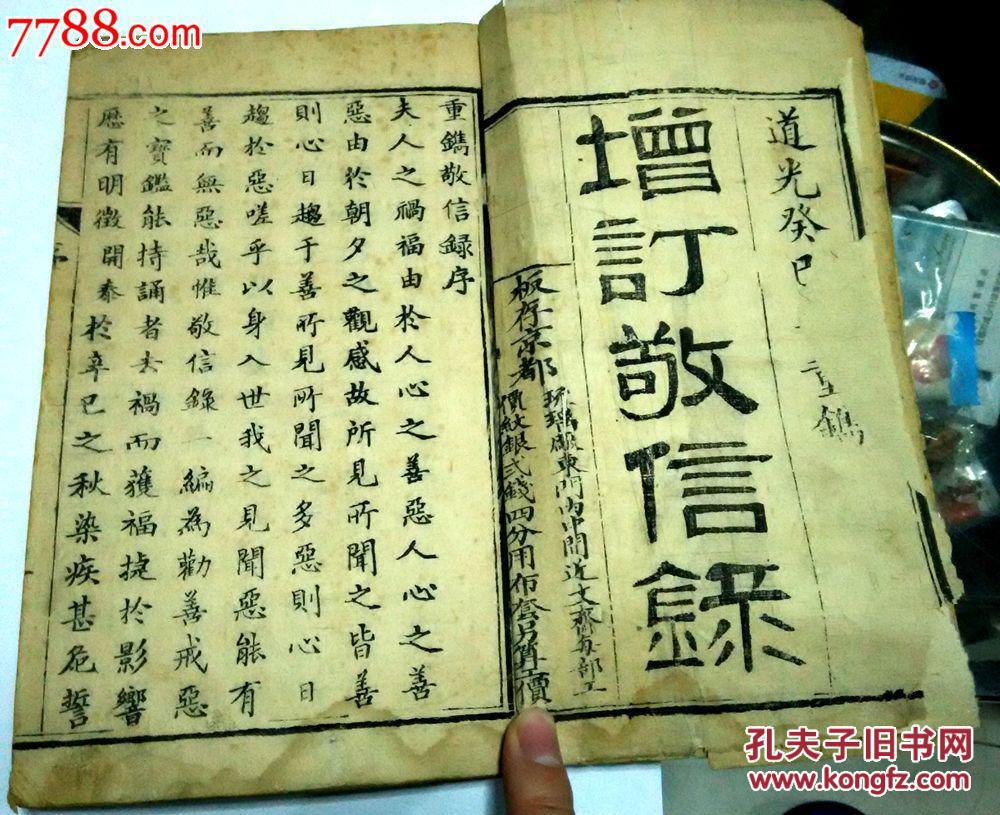 7788.com
道光癸巳
重鐫
增訂敬信錄
板存京都琉璃廠東門內中間近文齋每部工
價紋銀弍錢四分用布套另算價
重鐫敬信録序
夫人之禍福由於人心之善惡人心之善
惡由於朝夕之觀感故所見所聞之皆善
則心日趨于善所見所聞之多惡則心日
趨於惡嗟乎以身入世我之見聞惡能有
善而無惡哉惟敬信錄一編為勸善戒惡
之寶鑑能持誦者去禍而獲福捷於影響
歷有明徵開泰於辛巳之秋染疾甚危誓
孔夫子旧书网
www.kongfz.com